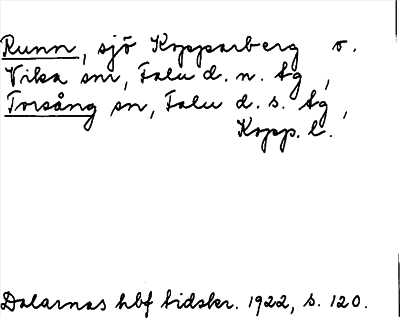 Runn, sjö Kopparberg o.
Vika sn, Falu d. n. tg,
Torsång sn, Falu d. s. tg,
Kopp. l.
Dalarnas hbf tidskr. 1922, s. 120.